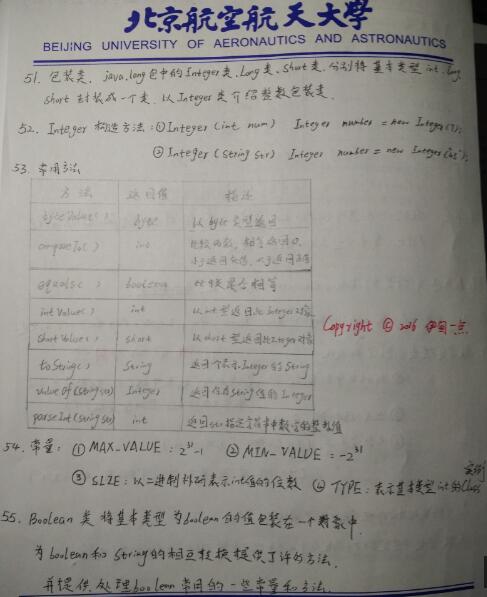 北京航空航天大學
BEIJING UNIVERSITY OF AERONAUTICS AND ASTRONAUTICS
51. 包装类. java.lang包中的Integer类. Long类. Short类. 分别将基本类型int. long
short封装成一个类. 以Integer类介绍整数包装类.
52. Integer构造方法: ① Integer (int num) Integer number = new Integer(7);
② Integer (String str) Integer number = new Integer
53. 常用方法
方法 返回值 描述
byteValue() byte 以byte类型返回
compareTo() int 比较两数, 相等返回0,
小于返回负值, 大于返回正值
equals() boolean 是否相等
intValue() int 以int型返回此Integer对象
shortValue() short 以short型返回此Integer对象
toString() String 返回个表示Integer的String
valueOf(String str) Integer 返回保存String值的Integer
parseInt(String str) int 返回str指定字符串中数字的整数值
Copyright © 2016 一点
54. 常量: ① MAX_VALUE : 2³¹-1 ② MIN_VALUE = -2³¹
③ SIZE: 以二进制补码表示int值的位数 ④ TYPE: 表示基本类型int的Class
实例
55. Boolean类将基本类型为boolean的值包装在一个对象中.
为boolean和String的相互转换提供了许多方法.
并提供处理boolean常用的一些常量和方法.